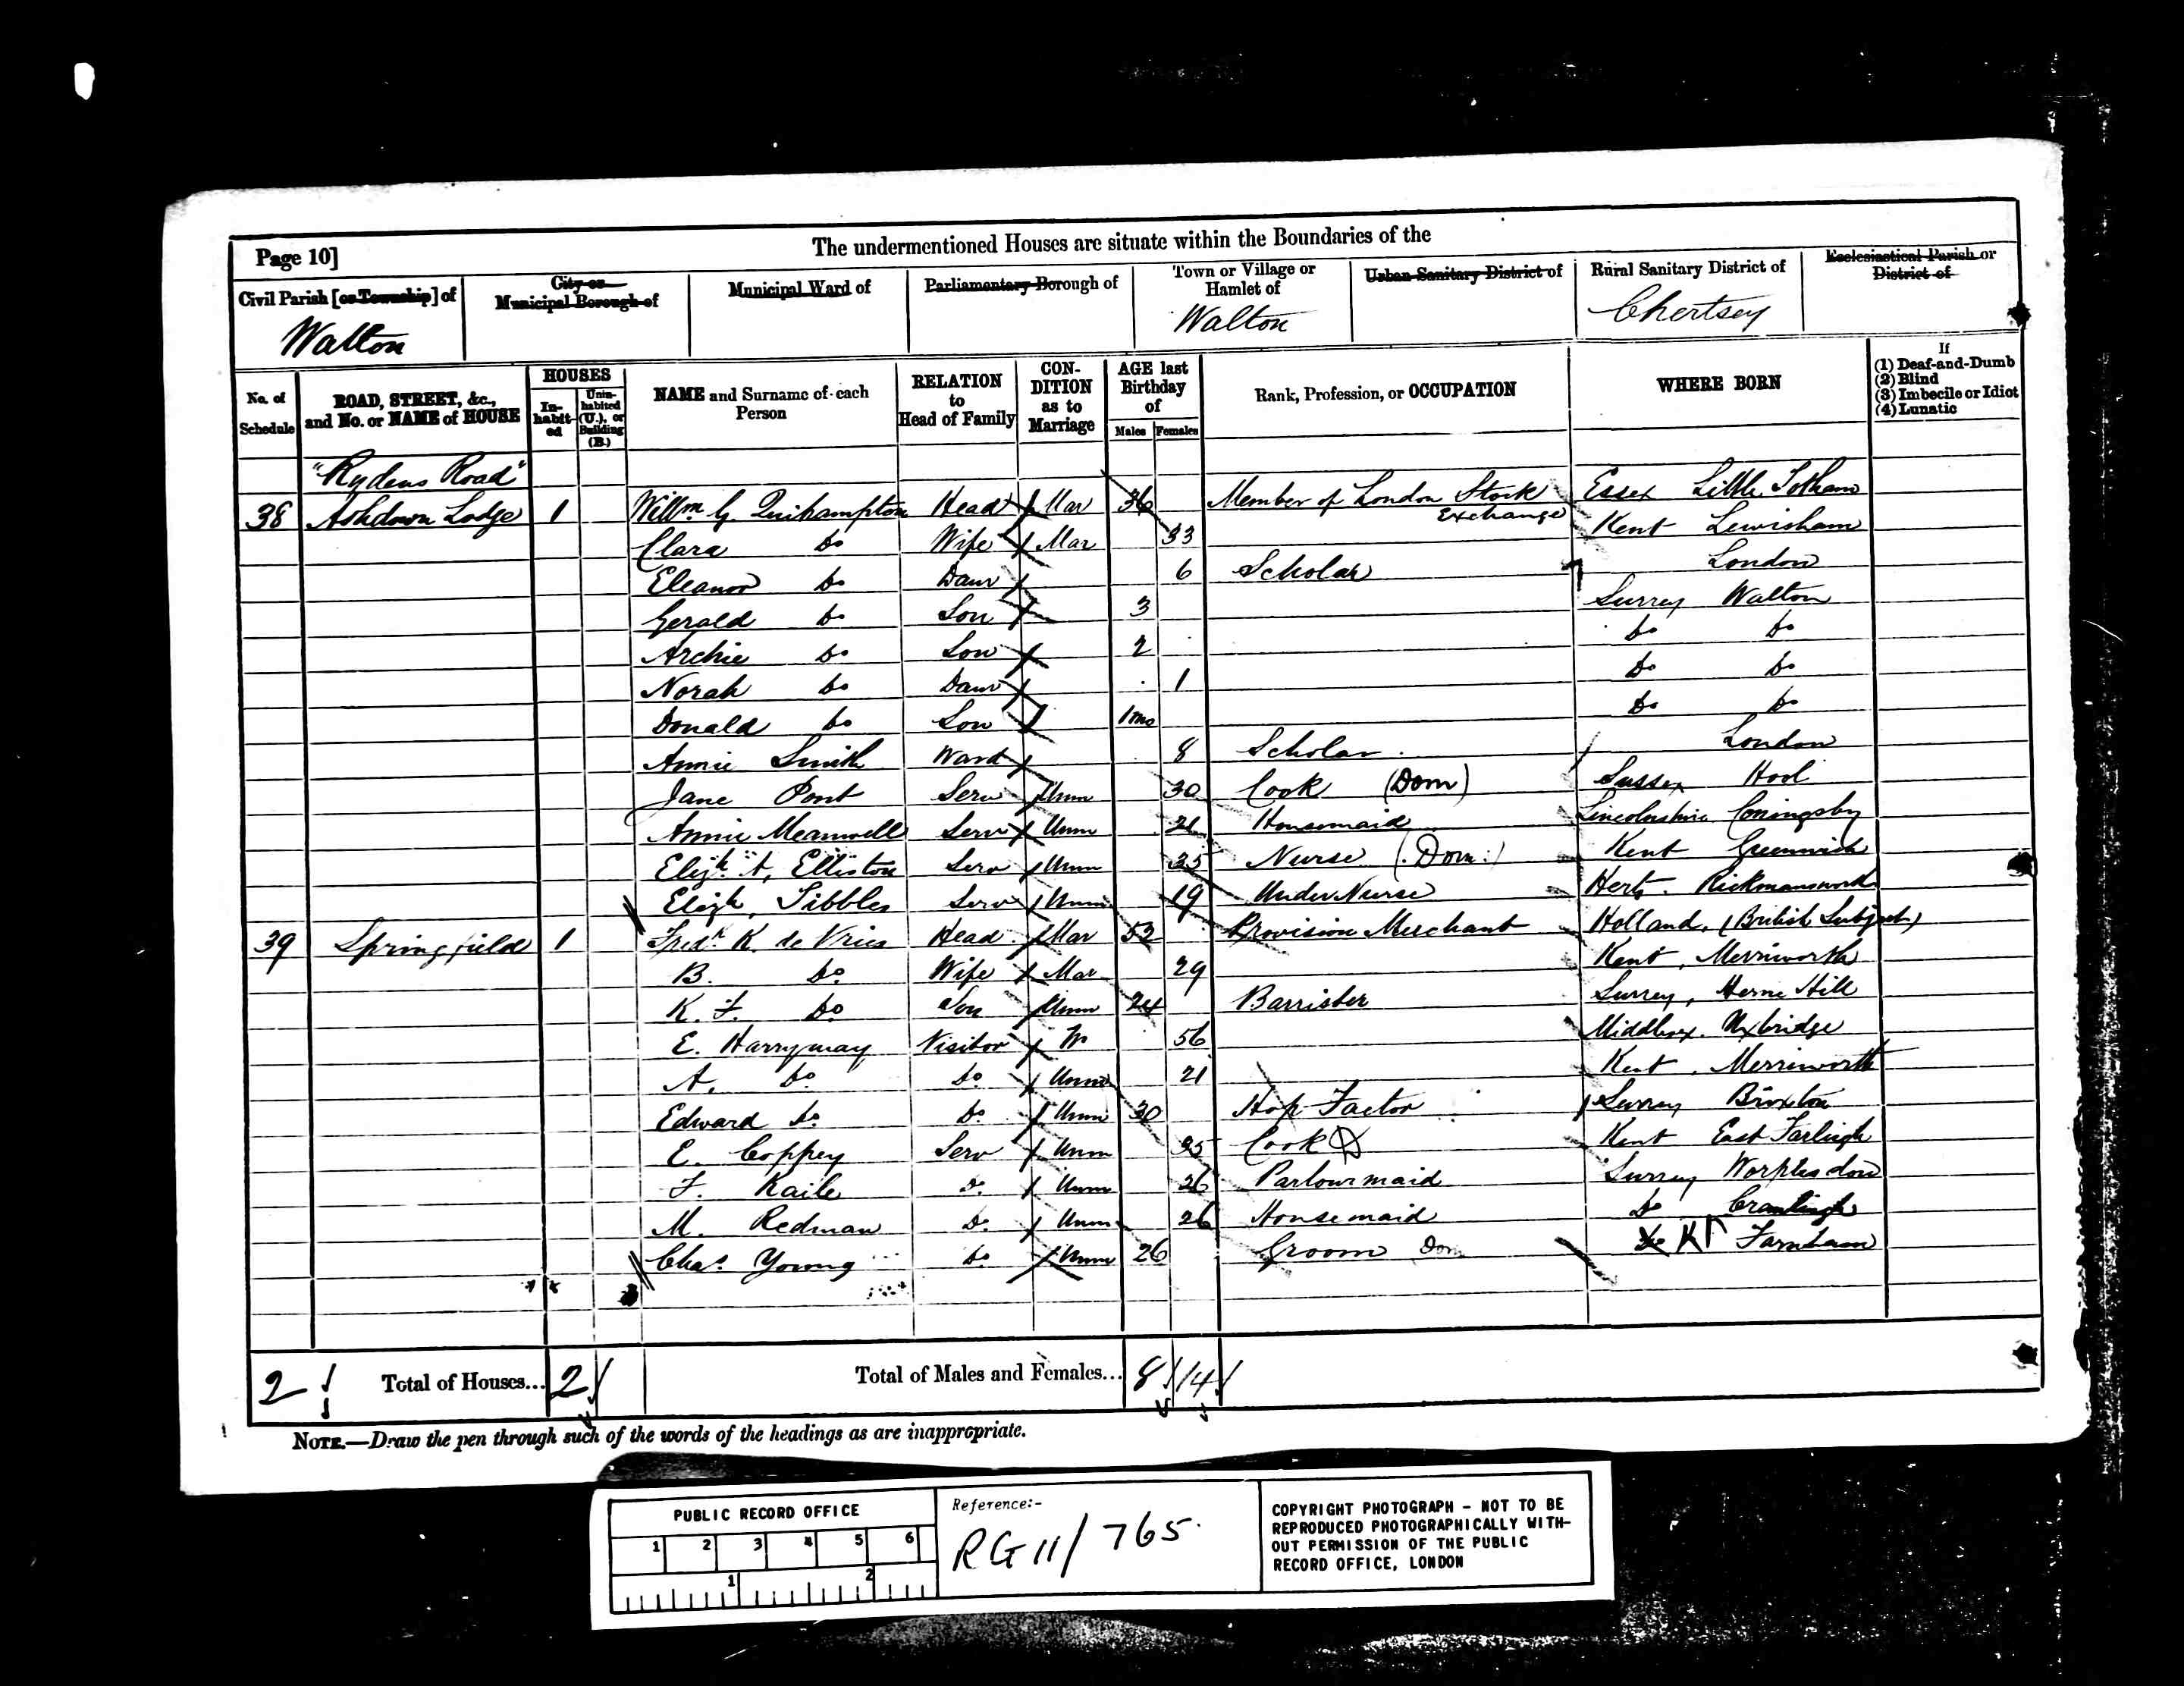 Page 10]
The undermentioned Houses are situate within the Boundaries of the
Civil Parish [or Township] of
City or
Municipal Borough of
Municipal Ward of
Parliamentary Borough of
Town or Village or
Hamlet of
Urban Sanitary District of
Rural Sanitary District of
Ecclesiastical Parish or
District of
Walton
Walton
Chertsey
No. of
Schedule
ROAD, STREET, &c.,
and No. or NAME of HOUSE
HOUSES
In-
habit-
ed
Unin-
habited
(U.), or
Building
(B.)
NAME and Surname of each
Person
RELATION
to
Head of Family
CON-
DITION
as to
Marriage
AGE last
Birthday
of
Males
Females
Rank, Profession, or OCCUPATION
WHERE BORN
If
(1) Deaf-and-Dumb
(2) Blind
(3) Imbecile or Idiot
(4) Lunatic
"Rydens Road"
38 Ashdown Lodge 1 Willm G. Quihampton Head Mar 36 Member of London Stock Exchange Essex Little Totham
Clara Do Wife Mar 33 Kent Lewisham
Eleanor Do Daur 6 Scholar London
Gerald Do Son 3 Surrey Walton
Archie Do Son 2 Do Do
Norah Do Daur 1 Do Do
Donald Do Son 1mo Do Do
Annie Smith Ward 8 Scholar London
Jane Pont Serv Unm 30 Cook (Dom) Sussex
Annie Meanwell Serv Unm 21 Housemaid Lincolnshire Coningsby
Elizh A. Elliston Serv Unm 35 Nurse (Dom.) Kent Greenwich
Elizh Tibbles Serv Unm 19 Under Nurse Herts. Rickmansworth
39 Springfield 1 Fredk K. de Vries Head Mar 53 Provision Merchant Holland, (British Subject)
B. Do Wife Mar 29 Kent, Merriworth
K. F. Do Son Unm 24 Barrister Surrey, Herne Hill
E. Harryman Visitor W 56 Middlesex. Uxbridge
A. Do Do Unm 21 Kent, Merriworth
Edward Do Do Unm 30 Hop Factor Surrey Brixton
E. Coppey Serv Unm 25 Cook D Kent East Farleigh
F. Kaile Do Unm 26 Parlourmaid Surrey Worplesdon
M. Redman Do Unm 26 Housemaid Do Cranleigh
Chas. Young Do Unm 26 Groom Dom Do Farnham
2 Total of Houses... 2 Total of Males and Females... 8 14
NOTE.—Draw the pen through such of the words of the headings as are inappropriate.
PUBLIC RECORD OFFICE
1 2 3 4 5 6
1 2
Reference:-
RG 11/765
COPYRIGHT PHOTOGRAPH – NOT TO BE
REPRODUCED PHOTOGRAPHICALLY WITH-
OUT PERMISSION OF THE PUBLIC
RECORD OFFICE, LONDON